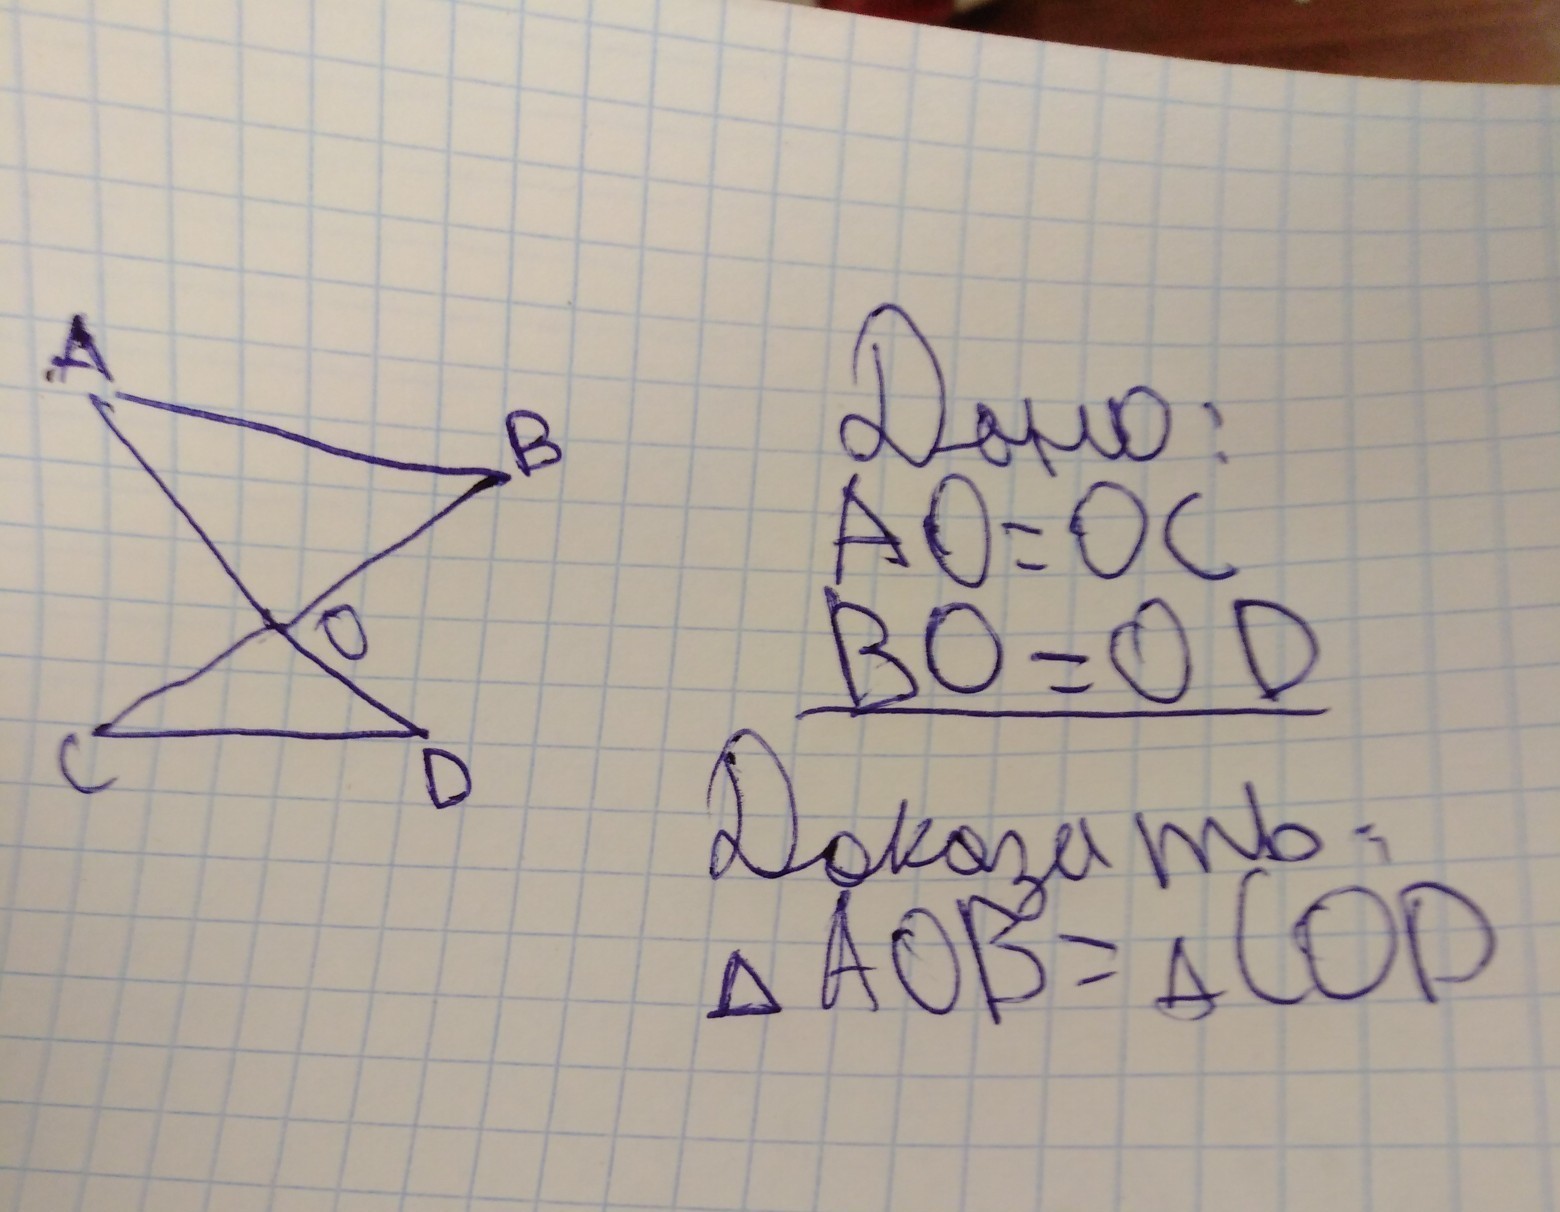 A
B
O
C
D
Дано:
AO=OC
BO=OD
Доказать:
△AOB=△COD